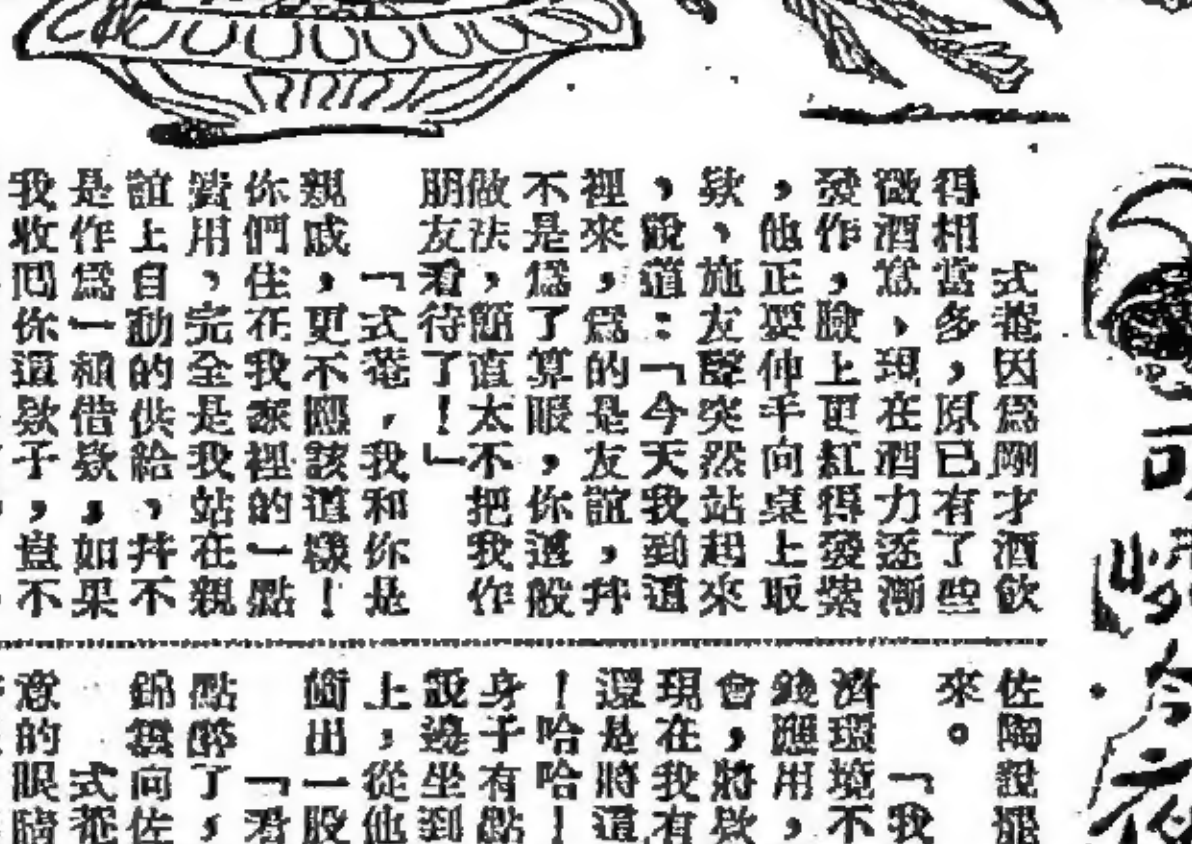 式菴因爲剛才酒飲
得相當多，原已有了些
微酒意、現在酒力逐漸
發作，臉上更紅得發紫
，他正要伸手向桌上取
欵、施友聲突然站起來
，說道：「今天我到這
裡來，爲的是友誼，幷
不是爲了算賬，你這般
做法，簡直太不把我作
朋友看待了！」
「式菴，我和你是
親戚，更不應該這樣！
你們住在我家裡的一點
費用，完全是我站在親
誼上自動的供給、幷不
是作爲一種借欵，如果
我收囘你這欵子，豈不
佐陶說罷
來。
「我
濟環境不
錢應用，
會，將欵
現在我有
還是將這
！哈哈！
身子有點
說邊坐到
上，從他
面出一股
「看
點醉了，
錦雲向佐
式菴
意的眼睛
可
今夜